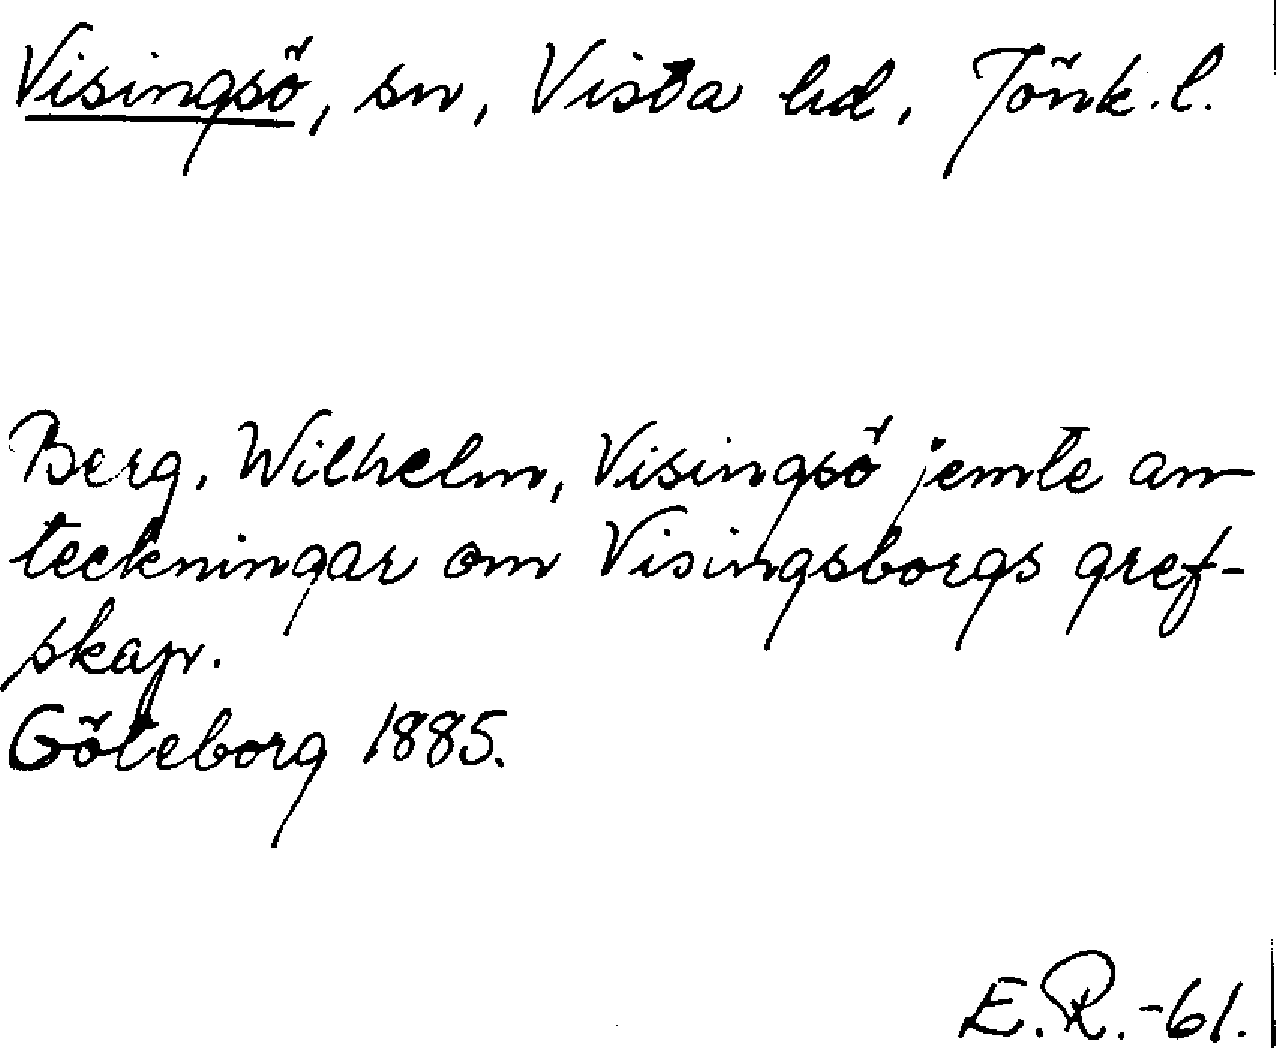 Visingsö, sn, Vista hd, Jönk. l.
Berg, Wilhelm, Visingsö jemte an
teckningar om Visingsborgs gref-
skap.
Göteborg 1885.
E.R.-61.